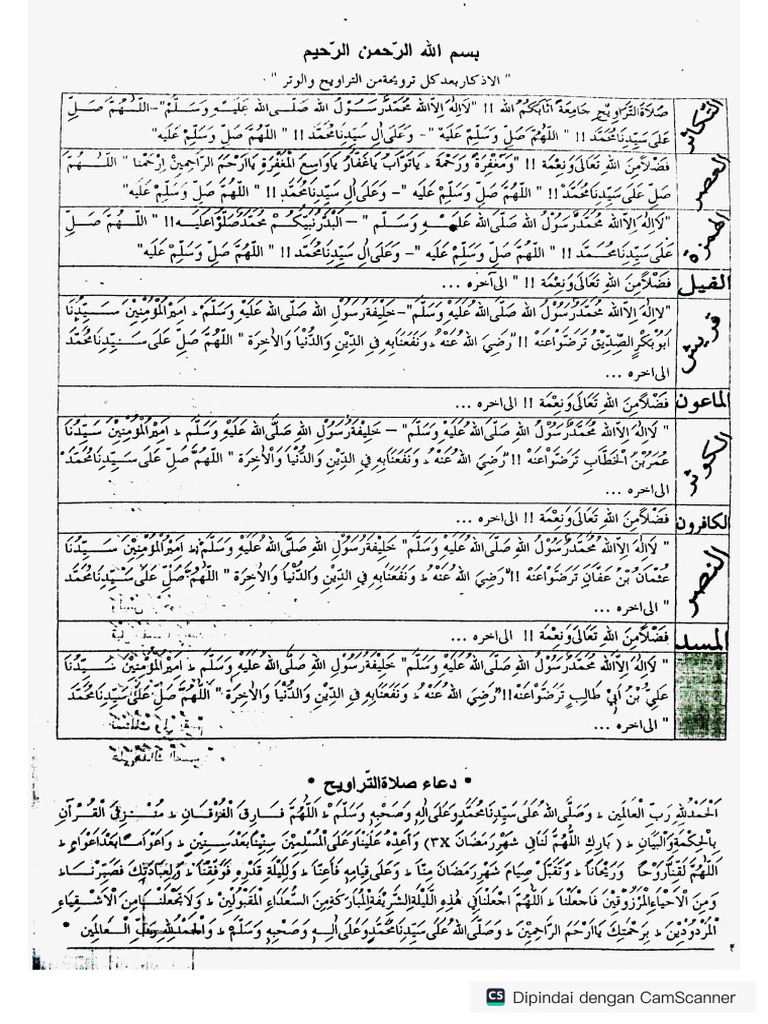 بسم الله الرّحمن الرّحيم
" الاذكار بعد كل ترويحة من التراويح والوتر " ٠
التّكاثر
صَلاَةَ التَّرَاوِيْحِ جَامِعَةً اَثَابَكُمُ الله !! "لَااِلهَ اِلاَّ الله مُحَمَّدٌ رَسُوْلُ الله صَلَّى الله عَلَيْهِ وَسَلَّمْ"–اَللّٰهُمَّ صَلِّ
عَلَى سَيِّدِنَا مُحَمَّدْ !! " اَللّٰهُمَّ صَلِّ وَسَلِّمْ عَلَيْهِ "– وَعَلَى اٰلِ سَيِّدِنَا مُحَمَّدْ !! " اَللّٰهُمَّ صَلِّ وَسَلِّمْ عَلَيْه"
العصر
فَضْلاً مِنَ اللهِ تَعَالَى وَنِعْمَةْ !! "وَمَغْفِرَةً وَرَحْمَةْ ، يَاتَوَّابُ يَاغَفَّارُ يَاوَاسِعَ الْمَغْفِرَةِ يَااَرْحَمَ الرَّاحِمِيْنَ اِرْحَمْنَا " اَللّٰهُمَّ
صَلِّ عَلَى سَيِّدِنَا مُحَمَّدْ !! " اَللّٰهُمَّ صَلِّ وَسَلِّمْ عَلَيْه "– وَعَلَى اٰلِ سَيِّدِنَا مُحَمَّدْ !! " اَللّٰهُمَّ صَلِّ وَسَلِّمْ عَلَيْه"
الهمزة
"لَااِلهَ اِلاَّ الله مُحَمَّدٌ رَسُوْلُ الله صَلَّى الله عَلَيْهِ وَسَلَّم " – اَلْبَدْرُ نَبِيُّكُمْ مُحَمَّدْ صَلُّوْا عَلَيْه !! " اَللّٰهُمَّ صَلِّ
عَلَى سَيِّدِنَا مُحَمَّد !! " اَللّٰهُمَّ صَلِّ وَسَلِّمْ عَلَيْه "– وَعَلَى اٰلِ سَيِّدِنَا مُحَمَّدْ !! " اَللّٰهُمَّ صَلِّ وَسَلِّمْ عَلَيْه"
الفيل
فَضْلاً مِنَ اللهِ تَعَالَى وَنِعْمَةْ !! " الى آخره ...
قريش
"لَااِلهَ اِلاَّ الله مُحَمَّدٌ رَسُوْلُ الله صَلَّى الله عَلَيْهِ وَسَلَّمْ"–خَلِيْفَةُ رَسُوْلِ الله صَلَّى الله عَلَيْهِ وَسَلَّمْ ، اَمِيْرُ الْمُؤْمِنِيْنَ سَيِّدُنَا
اَبُوْ بَكْرٍ الصِّدِّيْقُ تَرَضَّوْا عَنْهُ !! "رَضِيَ اللهُ عَنْهُ ، وَنَفَعَنَا بِهِ فِي الدِّيْنِ وَالدُّنْيَا وَالْاٰخِرَة " اَللّٰهُمَّ صَلِّ عَلَى سَيِّدِنَا مُحَمَّدْ
الى اخره ...
الماعون
فَضْلاً مِنَ اللهِ تَعَالَى وَنِعْمَة !! الى اخره ...
الكوثر
" لَااِلهَ اِلاَّ الله مُحَمَّدٌ رَسُوْلُ اللهِ صَلَّى اللهُ عَلَيْهِ وَسَلَّمْ" – خَلِيْفَةُ رَسُوْلِ اللهِ صَلَّى اللهُ عَلَيْهِ وَسَلَّمَ ، اَمِيْرُ الْمُؤْمِنِيْنَ سَيِّدُنَا
عُمَرُ بْنُ الْخَطَّابِ تَرَضَّوْا عَنْهُ !! "رَضِيَ اللهُ عَنْهُ ، وَنَفَعَنَا بِهِ فِي الدِّيْنِ وَالدُّنْيَا وَالْاٰخِرَة " اَللّٰهُمَّ صَلِّ عَلَى سَيِّدِنَا مُحَمَّدْ
الى اخره ...
الكافرون
فَضْلاً مِنَ اللهِ تَعَالَى وَنِعْمَة !! الى اخره ...
النّصر
" لَااِلهَ اِلاَّ الله مُحَمَّدٌ رَسُوْلُ اللهِ صَلَّى اللهُ عَلَيْهِ وَسَلَّمْ" خَلِيْفَةُ رَسُوْلِ اللهِ صَلَّى اللهُ عَلَيْهِ وَسَلَّمْ ، اَمِيْرُ الْمُؤْمِنِيْنَ سَيِّدُنَا
عُثْمَانُ بْنُ عَفَّانَ تَرَضَّوْا عَنْهُ !! "رَضِيَ اللهُ عَنْهُ ، وَنَفَعَنَا بِهِ فِي الدِّيْنِ وَالدُّنْيَا وَالْاٰخِرَة " اَللّٰهُمَّ صَلِّ عَلَى سَيِّدِنَا مُحَمَّدْ
" الى اخره ...
المسد
فَضْلاً مِنَ اللهِ تَعَالَى وَنِعْمَة !! الى اخره ...
" لَااِلهَ اِلاَّ الله مُحَمَّدٌ رَسُوْلُ اللهِ صَلَّى اللهُ عَلَيْهِ وَسَلَّمْ" خَلِيْفَةُ رَسُوْلِ اللهِ صَلَّى اللهُ عَلَيْهِ وَسَلَّمْ ، اَمِيْرُ الْمُؤْمِنِيْنَ سَيِّدُنَا
عَلِيُّ بْنُ اَبِيْ طَالِبٍ تَرَضَّوْا عَنْهُ !! "رَضِيَ اللهُ عَنْهُ ، وَنَفَعَنَا بِهِ فِي الدِّيْنِ وَالدُّنْيَا وَالْاٰخِرَة " اَللّٰهُمَّ صَلِّ عَلَى سَيِّدِنَا مُحَمَّدْ
" الى اخره ...
• دعاء صلاة التّراويح •
اَلْحَمْدُ لِلّٰهِ رَبِّ الْعَالَمِيْن ، وَصَلَّى اللهُ عَلَى سَيِّدِنَا مُحَمَّدٍ وَعَلَى اٰلِهِ وَصَحْبِهِ وَسَلَّمْ ، اَللّٰهُمَّ فَارِقَ الْفُرْقَانِ ، مُنْزِلَ الْقُرْآنِ
بِالْحِكْمَةِ وَالْبَيَانِ ، ( بَارِكِ اللّٰهُمَّ لَنَا فِي شَهْرِ رَمَضَانَ ٣x) وَاَعِدْهُ عَلَيْنَا وَعَلَى الْمُسْلِمِيْنَ سِنِيْنًا بَعْدَ سِنِيْنَ ، وَاَعْوَامًا بَعْدَ اَعْوَامٍ ،
اَللّٰهُمَّ لَقِّنَا رَوْحًا وَرَيْحَانًا ، وَتَقَبَّلْ صِيَامَ شَهْرِ رَمَضَانَ مِنَّا ، وَعَلَى قِيَامِهِ فَاَعِنَّا ، وَلِلَيْلَةِ قَدْرِهِ فَوَفِّقْنَا ، وَلِعِبَادَتِكَ فَصَبِّرْنَا ،
وَمِنَ الْاَحْيَاءِ الْمَرْزُوْقِيْنَ فَاجْعَلْنَا ، اَللّٰهُمَّ اجْعَلْنَا فِي هٰذِهِ اللَّيْلَةِ الشَّرِيْفَةِ الْمُبَارَكَةِ مِنَ السُّعَدَاءِ الْمَقْبُوْلِيْنَ ، وَلَا تَجْعَلْنَا مِنَ الْاَشْقِيَاءِ
الْمَرْدُوْدِيْنَ ، بِرَحْمَتِكَ يَااَرْحَمَ الرَّاحِمِيْنَ ، وَصَلَّى اللهُ عَلَى سَيِّدِنَا مُحَمَّدٍ وَعَلَى اٰلِهِ وَصَحْبِهِ وَسَلَّمْ ، وَالْحَمْدُ لِلّٰهِ رَبِّ الْعَالَمِيْن •
CS Dipindai dengan CamScanner